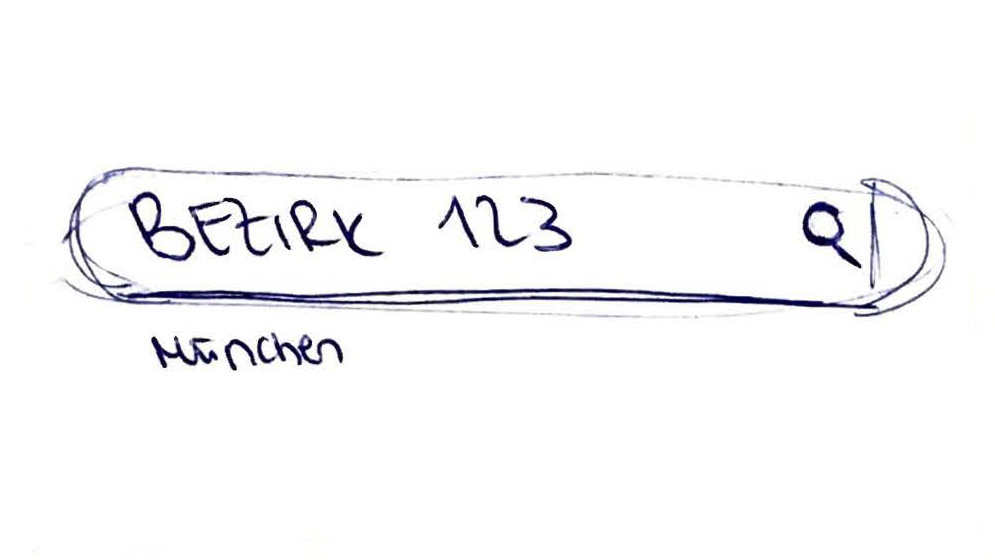 BEZIRK 123
München